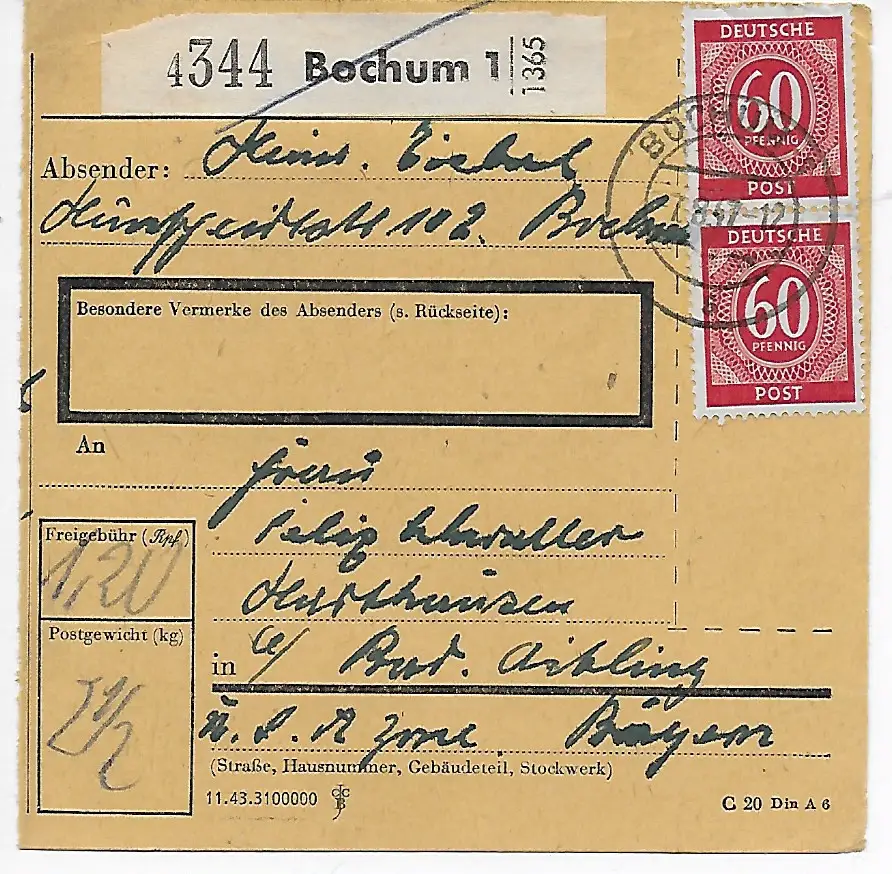 4344 Bochum 1 1365
DEUTSCHE
60
PFENNIG
POST
DEUTSCHE
60
PFENNIG
POST
BOCHUM
.8.47-12
Absender:
102. Bochum
Besondere Vermerke des Absenders (s. Rückseite):
An
Frau
Harthausen
in b/ Bad. Aibling
U.S.A Zone Bayern
(Straße, Hausnummer, Gebäudeteil, Stockwerk)
Freigebühr (Rpf)
1,20
Postgewicht (kg)
11.43.3100000
C 20 Din A 6